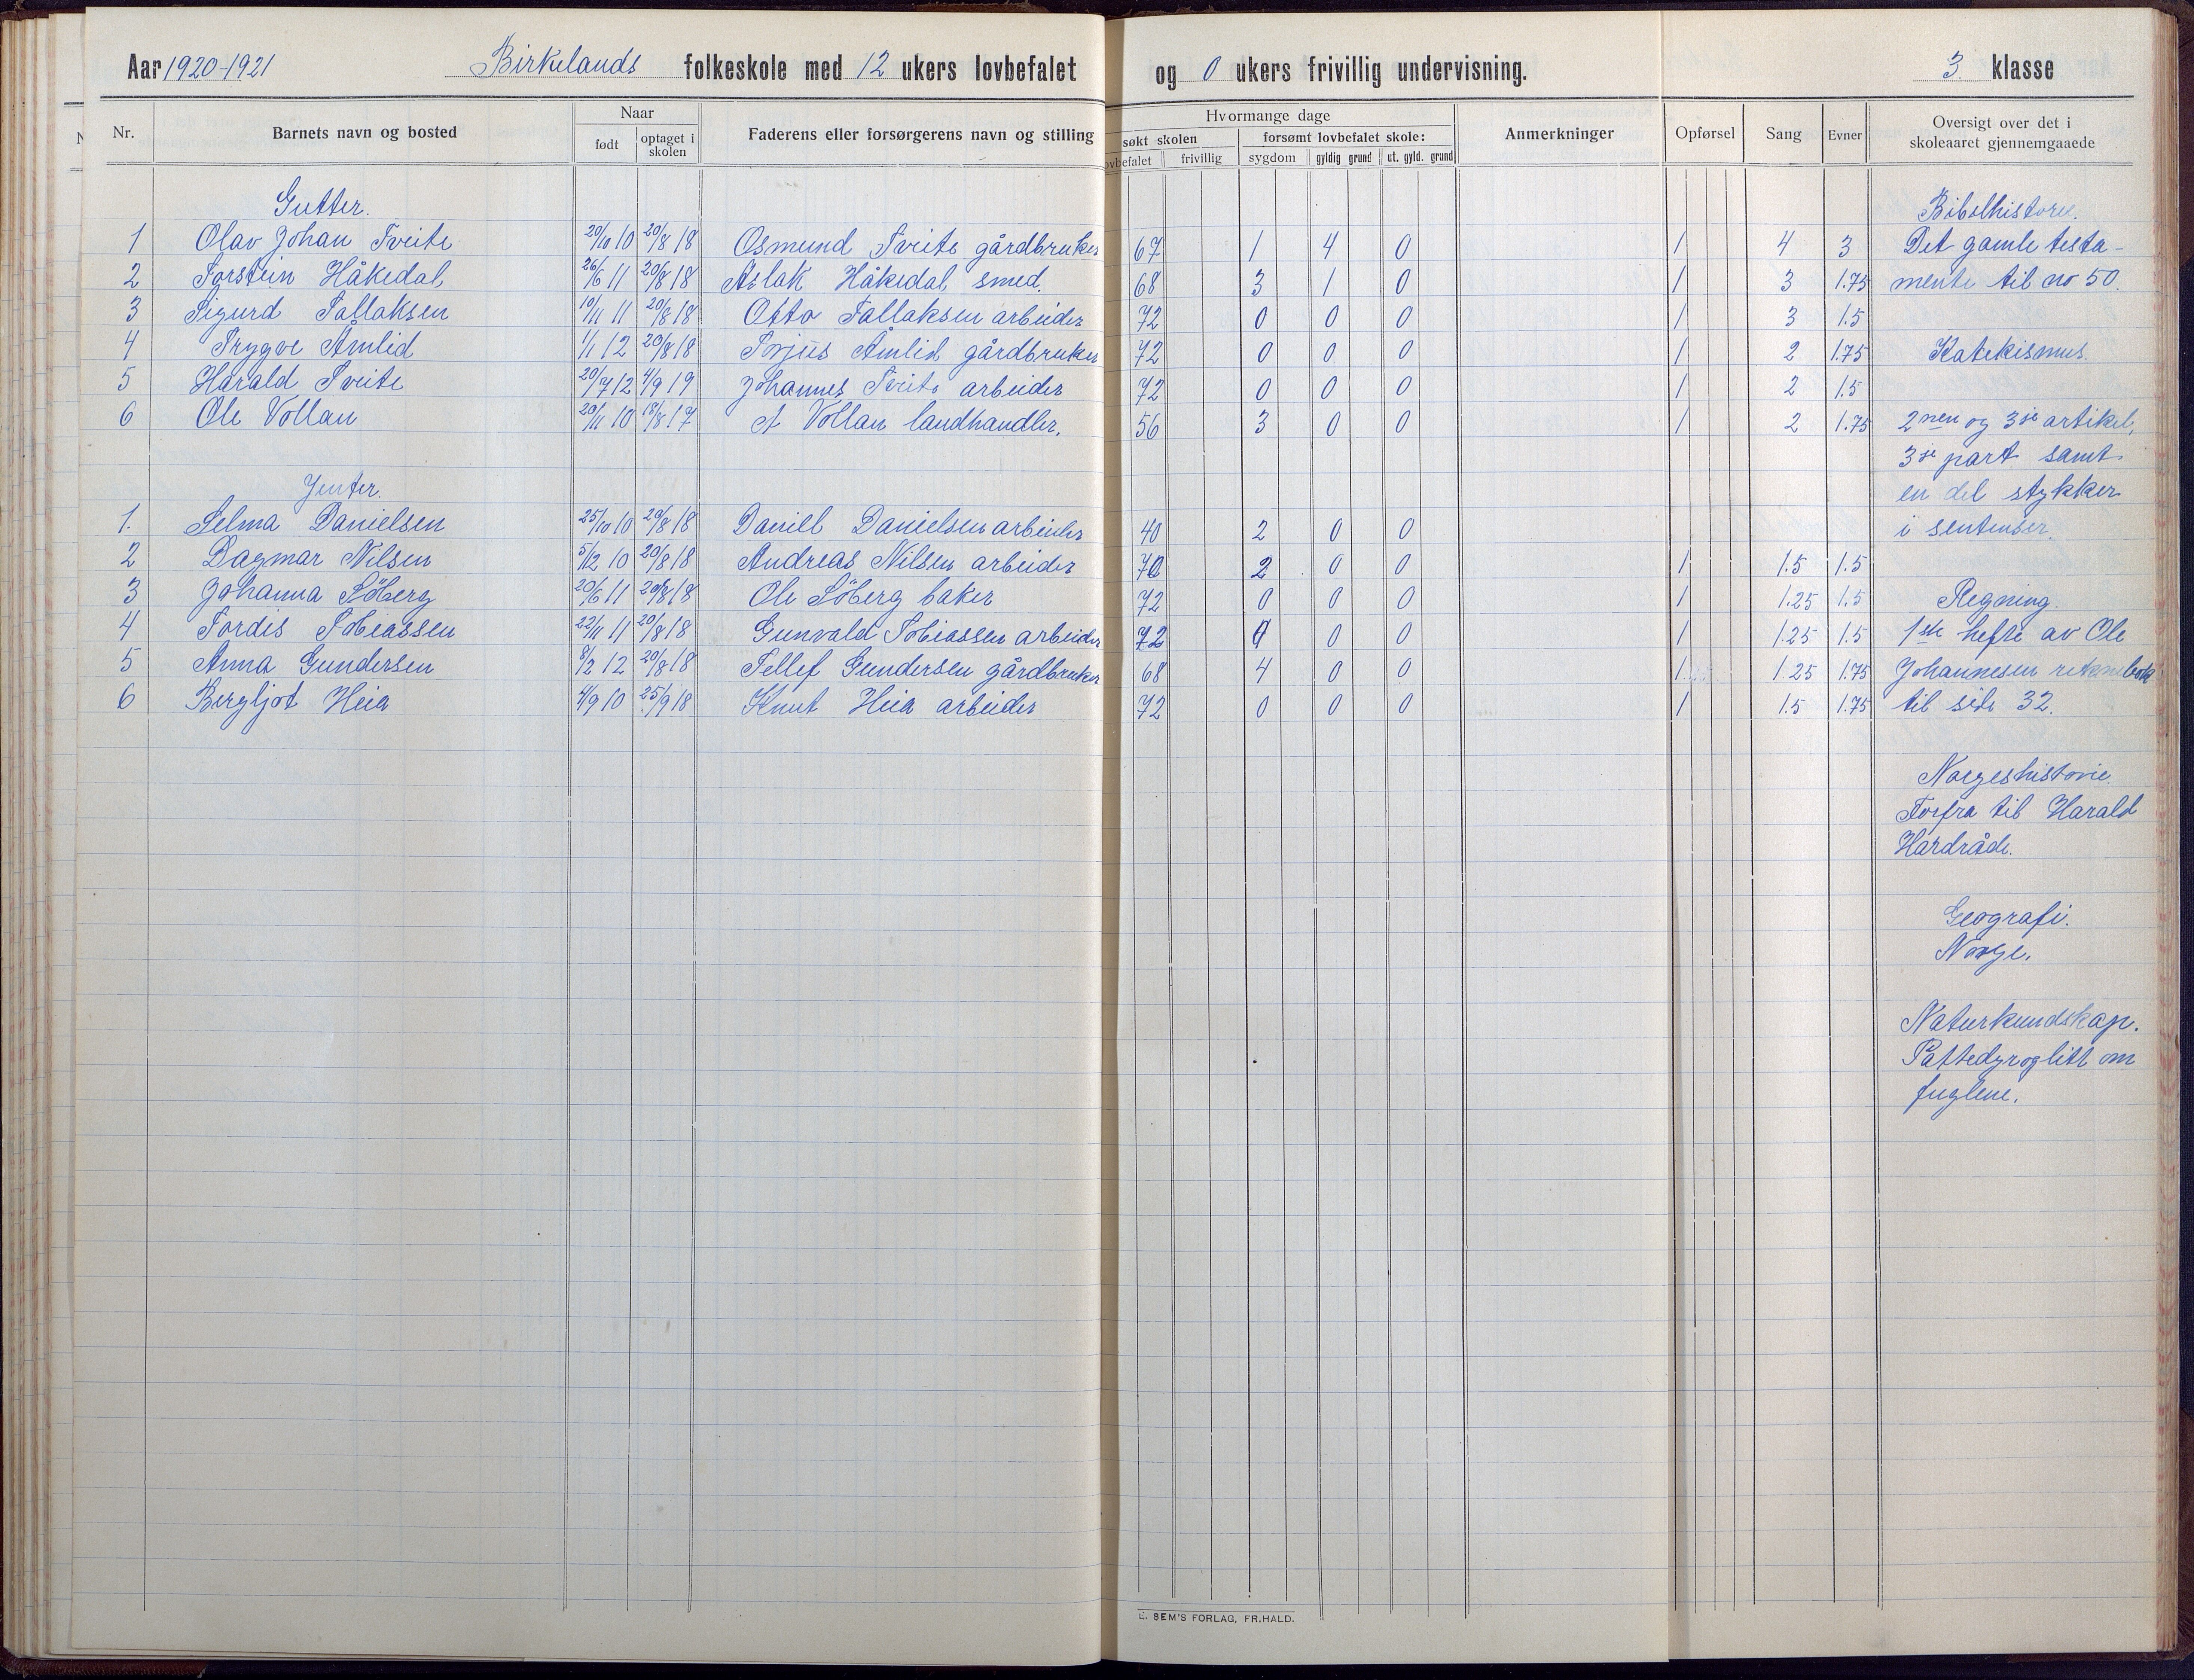 Aar 1920-1921 Birkelands folkeskole med 12 ukers lovbefalet og 0 ukers frivillig undervisning. 3. klasse
Nr. Barnets navn og bosted Naar født optaget i skolen Faderens eller forsørgerens navn og stilling Hvormange dage søkt skolen frivillig forsømt lovbefalet skole: sygdom gyldig grund ut. gyld. grund Anmerkninger Opførsel Sang Evner Oversigt over det i skoleaaret gjennemgaaede
Gutter.
1 Olav Johan Tveite 20/10 10 20/8 18 Osmund Tveite gårdbruker 67 1 4 0 1 4 3
2 Torstein Håkedal 26/6 11 20/8 18 Aslak Håkedal smed. 68 3 1 0 1 3 1.75
3 Sigurd Tallaksen 19/11 11 20/8 18 Otto Tallaksen arbeider 72 0 0 0 1 3 1.5
4 Trygve Åmlid 1/1 12 20/8 18 Torjus Åmlid gårdbruker 72 0 0 0 1 2 1.75
5 Harald Tveite 20/7 12 4/9 19 Johannes Tveite arbeider 72 0 0 0 1 2 1.5
6 Ole Vollan 20/11 10 18/8 17 A Vollan landhandler. 56 3 0 0 1 2 1.75
Jenter.
1. Selma Danielsen 25/10 10 20/8 18 Daniel Danielsen arbeider 40 2 0 0
2 Dagmar Nilsen 5/12 10 20/8 18 Andreas Nilsen arbeider 70 2 0 0 1 1.5 1.5
3 Johanna Söberg 20/6 11 20/8 18 Ole Söberg baker 72 0 0 0 1 1.25 1.5
4 Tordis Tobiassen 22/11 11 20/8 18 Gunvald Tobiassen arbeider 72 0 0 0 1 1.25 1.5
5 Anna Gundersen 8/2 12 20/8 18 Tellef Gundersen gårdbruker 68 4 0 0 1 1.25 1.75
6 Bergljot Heia 4/9 10 25/9 18 Knut Heia arbeider 72 0 0 0 1 1.5 1.75
Bibelhistorie.
Det gamle testa-
mente til no 50.
Katekismus.
2nen og 3je artikel,
3je part samt
en del stykker
i sentenser.
Regning.
1ste hefte av Ole
Johannesen reknebok
til side 32.
Norgeshistorie.
Forfra til Harald
Hardråde.
Geografi.
Norge.
Naturkundskap.
Pattedyr og litt om
fuglene.
E. SEM'S FORLAG, FR.HALD.